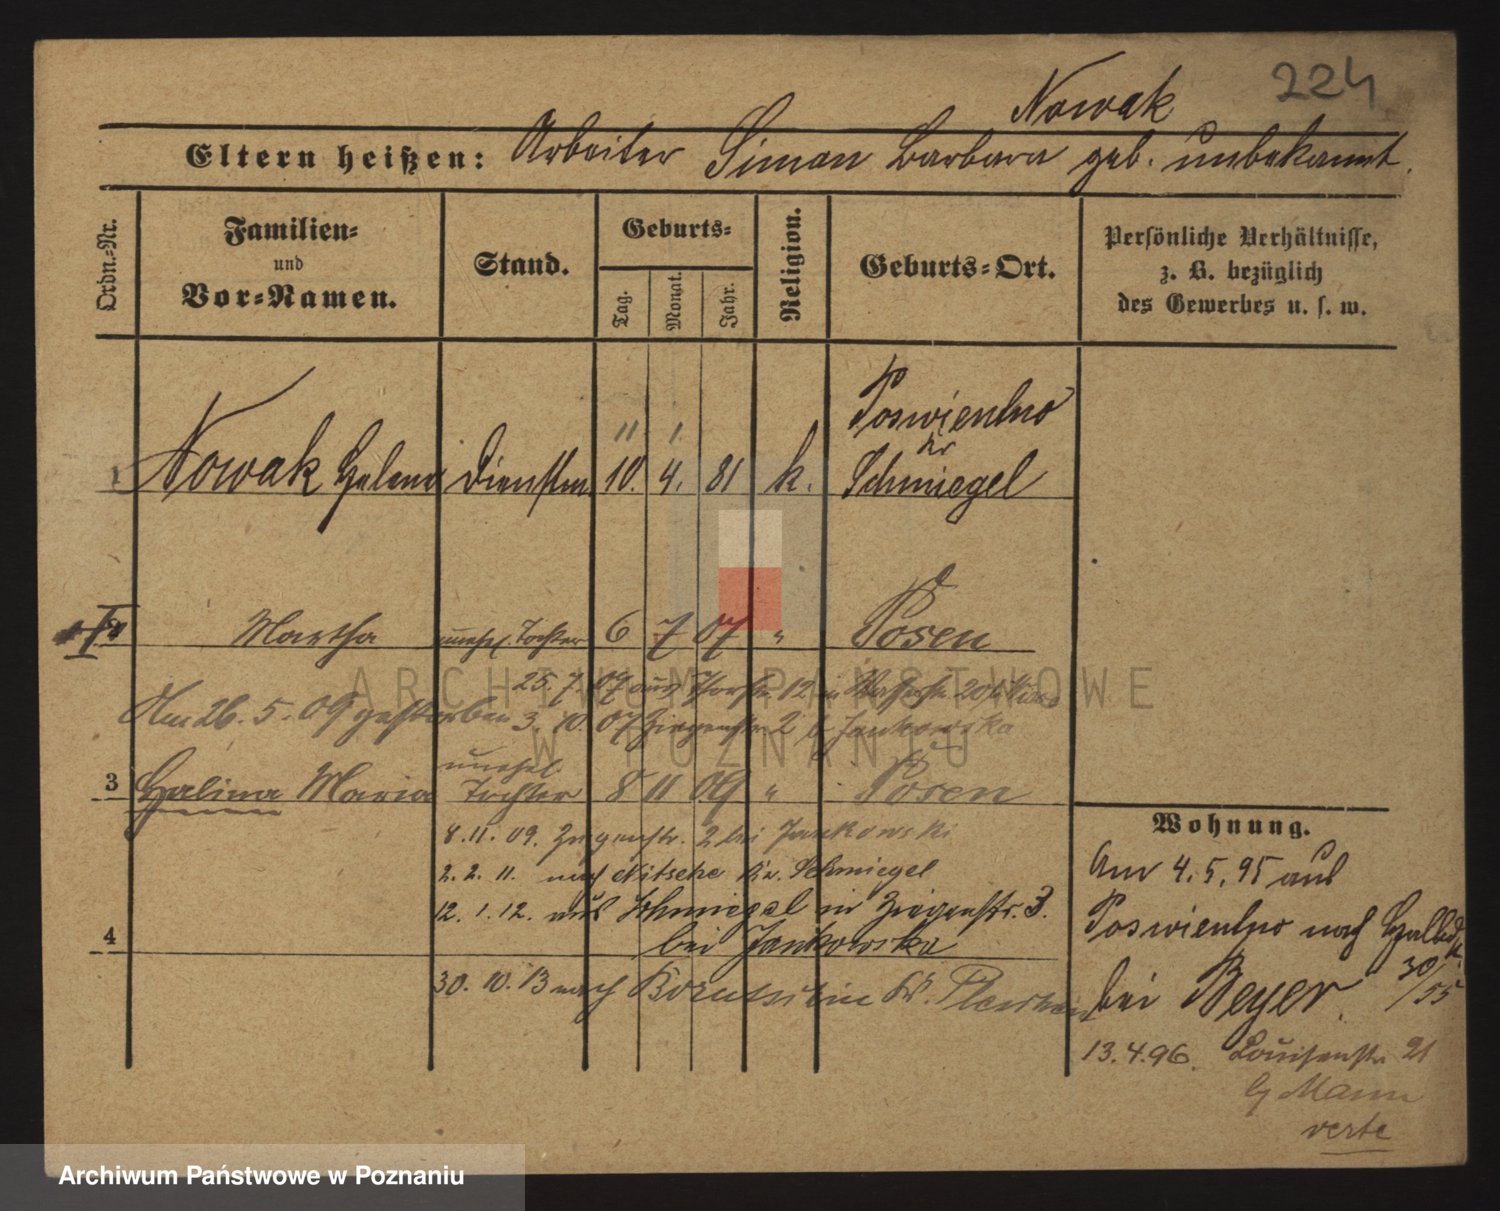 224
Nowak
Eltern heißen: Arbeiter Simon Barbara geb. unbekannt.
Ordn.-Nr.
Familien-
und
Vor-Namen.
Stand.
Geburts-
Tag.
Monat.
Jahr.
Religion.
Geburts-Ort.
Persönliche Verhältnisse,
z. B. bezüglich
des Gewerbes u. s. w.
11 1.
Poswientno
Kr
1 Nowak Helena 10. 4. 81 k. Schmiegel
Martha unehel. Tochter 6 7 07 " Posen
25. 7. 07 aus 12 in 20
Am 26. 5. 09 gestorben 3. 10. 07 Ziegenstr 2 b. Jankowska
unehel.
3 Halina Maria Tochter 8 11 09 " Posen
8. 11. 09. Ziegenstr. 2 bei Jankowski
2. 2. 11. nach Nitsche Kr. Schmiegel
12. 1. 12. aus Schmiegel in Ziegenstr. 3.
4 bei Jankowska
30. 10. 13 nach Kr.
Wohnung.
Am 4. 5. 95 aus
Poswientno nach
bei Beyer. 30/55
13. 4. 96. Louisenstr 21
Mann
verte
ARCHIWUM PAŃSTWOWE
W POZNANIU
Archiwum Państwowe w Poznaniu